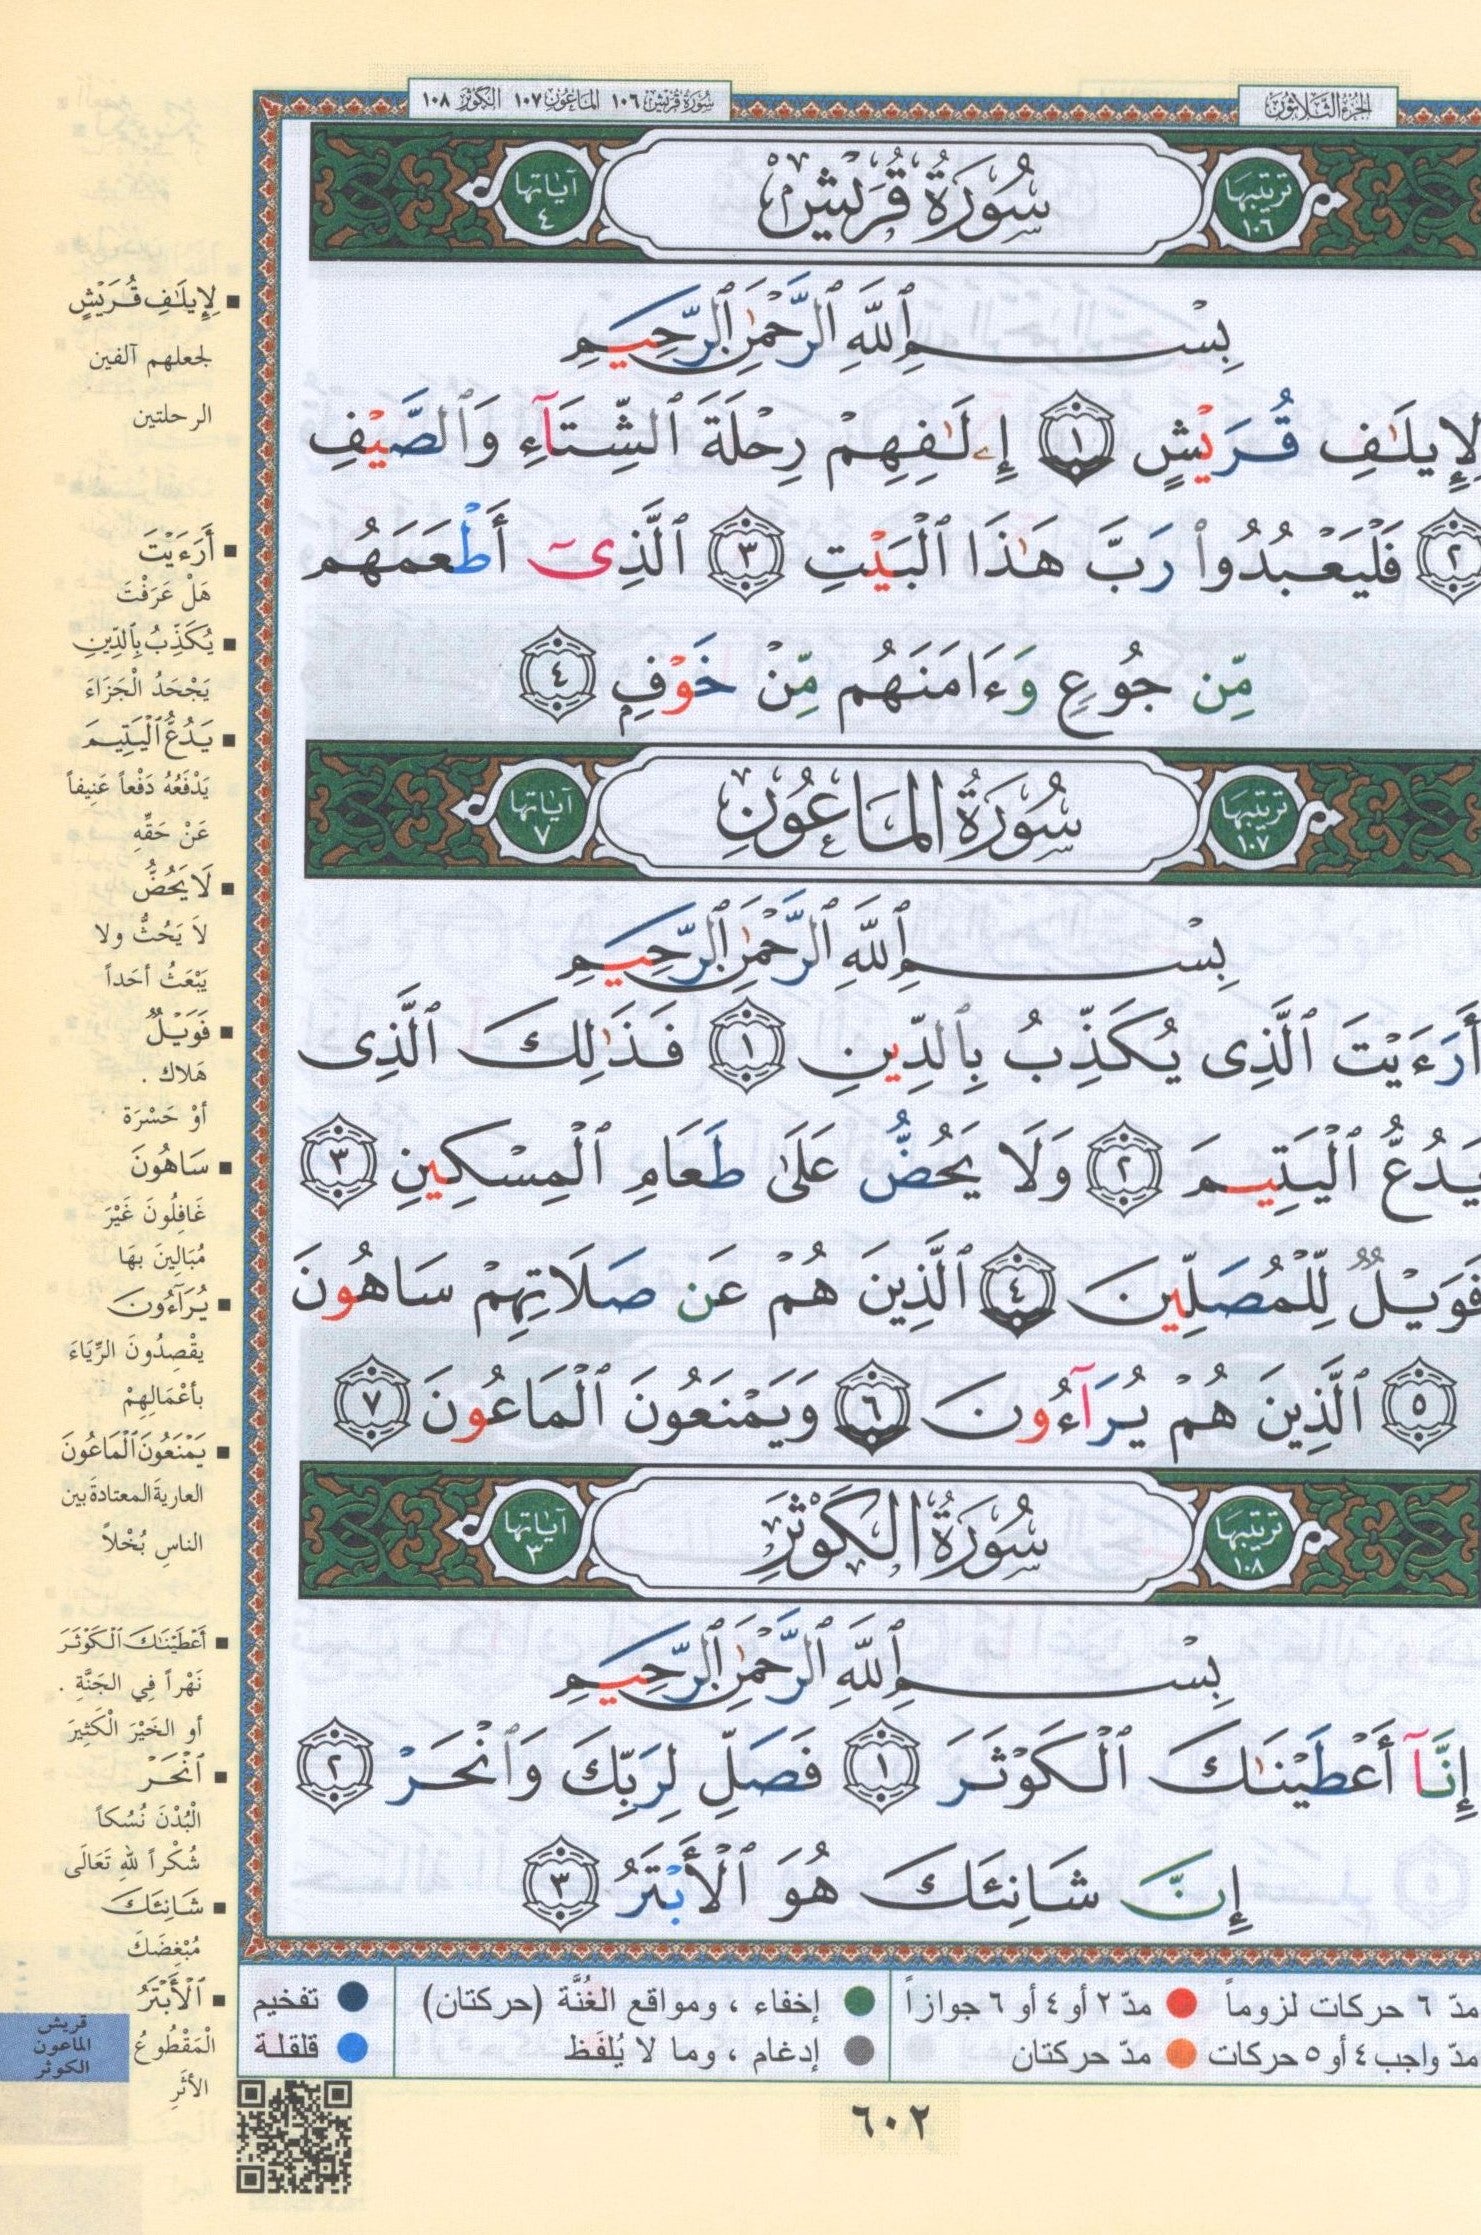 الجزء الثلاثون
سورة قريش ١٠٦ الماعون ١٠٧ الكوثر ١٠٨
ترتيبها ١٠٦
سُورَةُ قُرَيْشٍ
آياتها ٤
بِسْمِ ٱللَّهِ ٱلرَّحْمَٰنِ ٱلرَّحِيمِ
لِإِيلَٰفِ قُرَيْشٍ ١ إِۦلَٰفِهِمْ رِحْلَةَ ٱلشِّتَآءِ وَٱلصَّيْفِ
٢ فَلْيَعْبُدُوا۟ رَبَّ هَٰذَا ٱلْبَيْتِ ٣ ٱلَّذِىٓ أَطْعَمَهُم
مِّن جُوعٍ وَءَامَنَهُم مِّنْ خَوْفٍۭ ٤
ترتيبها ١٠٧
سُورَةُ المَاعُونِ
آياتها ٧
بِسْمِ ٱللَّهِ ٱلرَّحْمَٰنِ ٱلرَّحِيمِ
أَرَءَيْتَ ٱلَّذِى يُكَذِّبُ بِٱلدِّينِ ١ فَذَٰلِكَ ٱلَّذِى
يَدُعُّ ٱلْيَتِيمَ ٢ وَلَا يَحُضُّ عَلَىٰ طَعَامِ ٱلْمِسْكِينِ ٣
فَوَيْلٌ لِّلْمُصَلِّينَ ٤ ٱلَّذِينَ هُمْ عَن صَلَاتِهِمْ سَاهُونَ
٥ ٱلَّذِينَ هُمْ يُرَآءُونَ ٦ وَيَمْنَعُونَ ٱلْمَاعُونَ ٧
ترتيبها ١٠٨
سُورَةُ الكَوْثَرِ
آياتها ٣
بِسْمِ ٱللَّهِ ٱلرَّحْمَٰنِ ٱلرَّحِيمِ
إِنَّآ أَعْطَيْنَٰكَ ٱلْكَوْثَرَ ١ فَصَلِّ لِرَبِّكَ وَٱنْحَرْ ٢
إِنَّ شَانِئَكَ هُوَ ٱلْأَبْتَرُ ٣
لِإِيلَٰفِ قُرَيْشٍ
لجعلهم آلفين
الرحلتين
أَرَءَيْتَ
هَلْ عَرَفْتَ
يُكَذِّبُ بِٱلدِّينِ
يَجْحَدُ الْجَزَاءَ
يَدُعُّ ٱلْيَتِيمَ
يَدْفَعُهُ دَفْعاً عَنِيفاً
عَنْ حَقِّهِ
لَا يَحُضُّ
لَا يَحُثُّ ولا
يَبْعَثُ أحَداً
فَوَيْلٌ
هَلاك .
أوْ حَسْرَة
سَاهُونَ
غَافِلُونَ غَيْرَ
مُبَالِينَ بهَا
يُرَآءُونَ
يقْصِدُونَ الرِّيَاءَ
بأعْمَالِهِمْ
يَمْنَعُونَ ٱلْمَاعُونَ
العارية المعتادة بين
الناسِ بُخْلاً
أَعْطَيْنَٰكَ ٱلْكَوْثَرَ
نَهْراً فِي الجَنَّةِ .
أو الخَيْرَ الْكَثِيرَ
ٱنْحَرْ
الْبُدْنَ نُسُكاً
شُكْراً للهِ تَعَالَى
شَانِئَكَ
مُبْغِضَكَ
ٱلْأَبْتَرُ
الْمَقْطُوعُ
الأثَرِ
قريش
الماعون
الكوثر
مدّ ٦ حركات لزوماً
مدّ ٢ أو ٤ أو ٦ جوازاً
إخفاء ، ومواقع الغُنَّة (حركتان)
تفخيم
مدّ واجب ٤ أو ٥ حركات
مدّ حركتان
إدغام ، وما لا يُلفَظ
قلقلة
٦٠٢